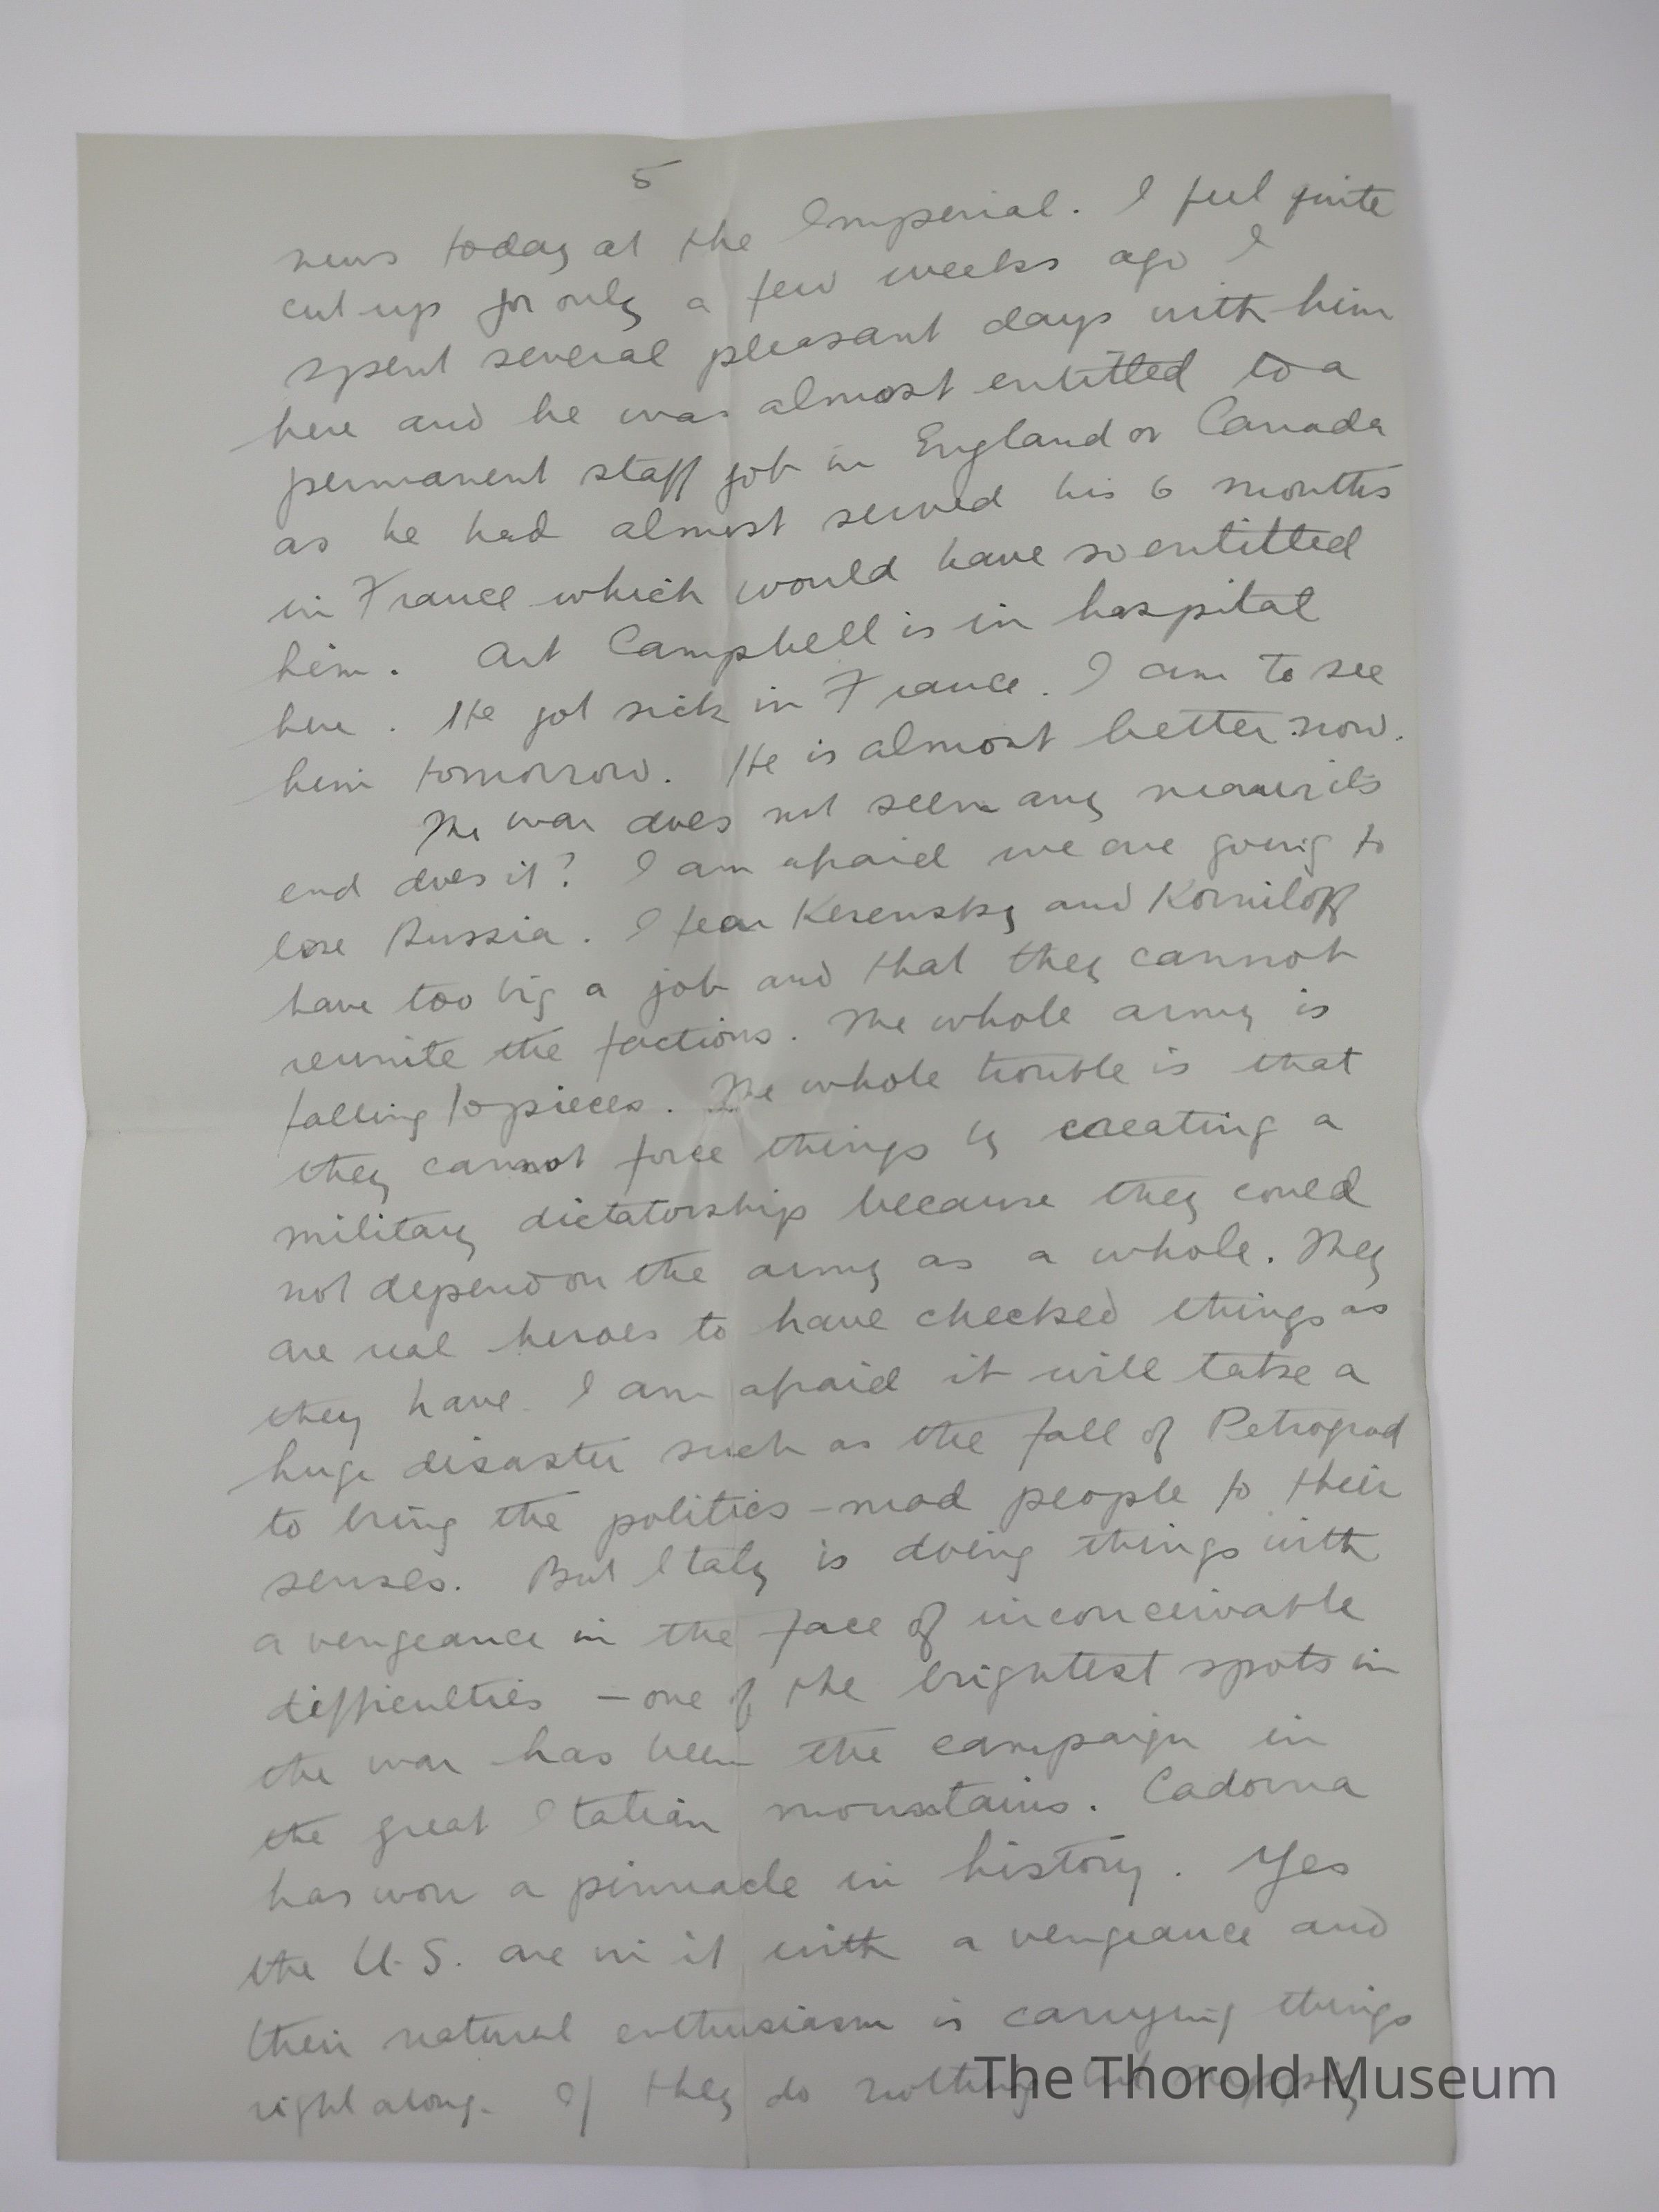 5
news today at the Imperial. I feel quite
cut up for only a few weeks ago I
spent several pleasant days with him
here and he was almost entitled to a
permanent staff job in England or Canada
as he had almost served his 6 months
in France which would have so entitled
him. Art Campbell is in hospital
here. He got sick in France. I am to see
him tomorrow. He is almost better now.
The war does not seem any nearer its
end does it? I am afraid we are going to
lose Russia. I fear Kerensky and Korniloff
have too big a job and that they cannot
reunite the factions. The whole army is
falling to pieces. The whole trouble is that
they cannot force things by creating a
military dictatorship because they could
not depend on the army as a whole. They
are real heroes to have checked things as
they have. I am afraid it will take a
huge disaster such as the fall of Petrograd
to bring the politics-mad people to their
senses. But Italy is doing things with
a vengeance in the face of inconceivable
difficulties – one of the brightest spots in
the war has been the campaign in
the great Italian mountains. Cadorna
has won a pinnacle in history. Yes
the U.S. are in it with a vengeance and
their natural enthusiasm is carrying things
right along. If they do nothing but supply
The Thorold Museum